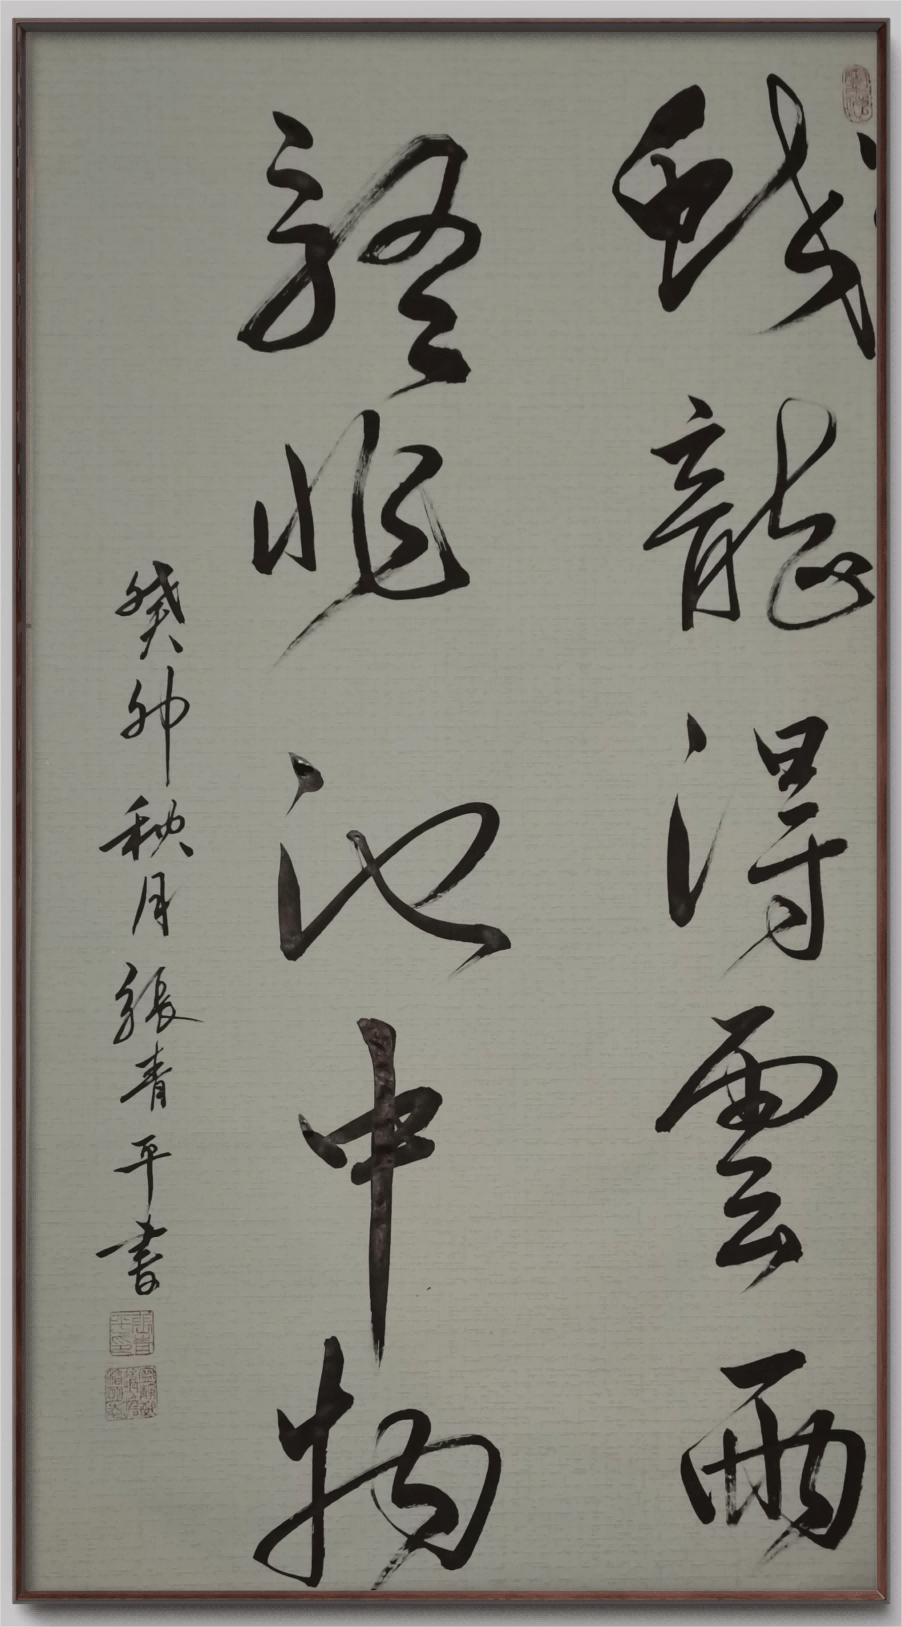 蛟龍得雲雨
終非池中物
癸卯秋月張青平書